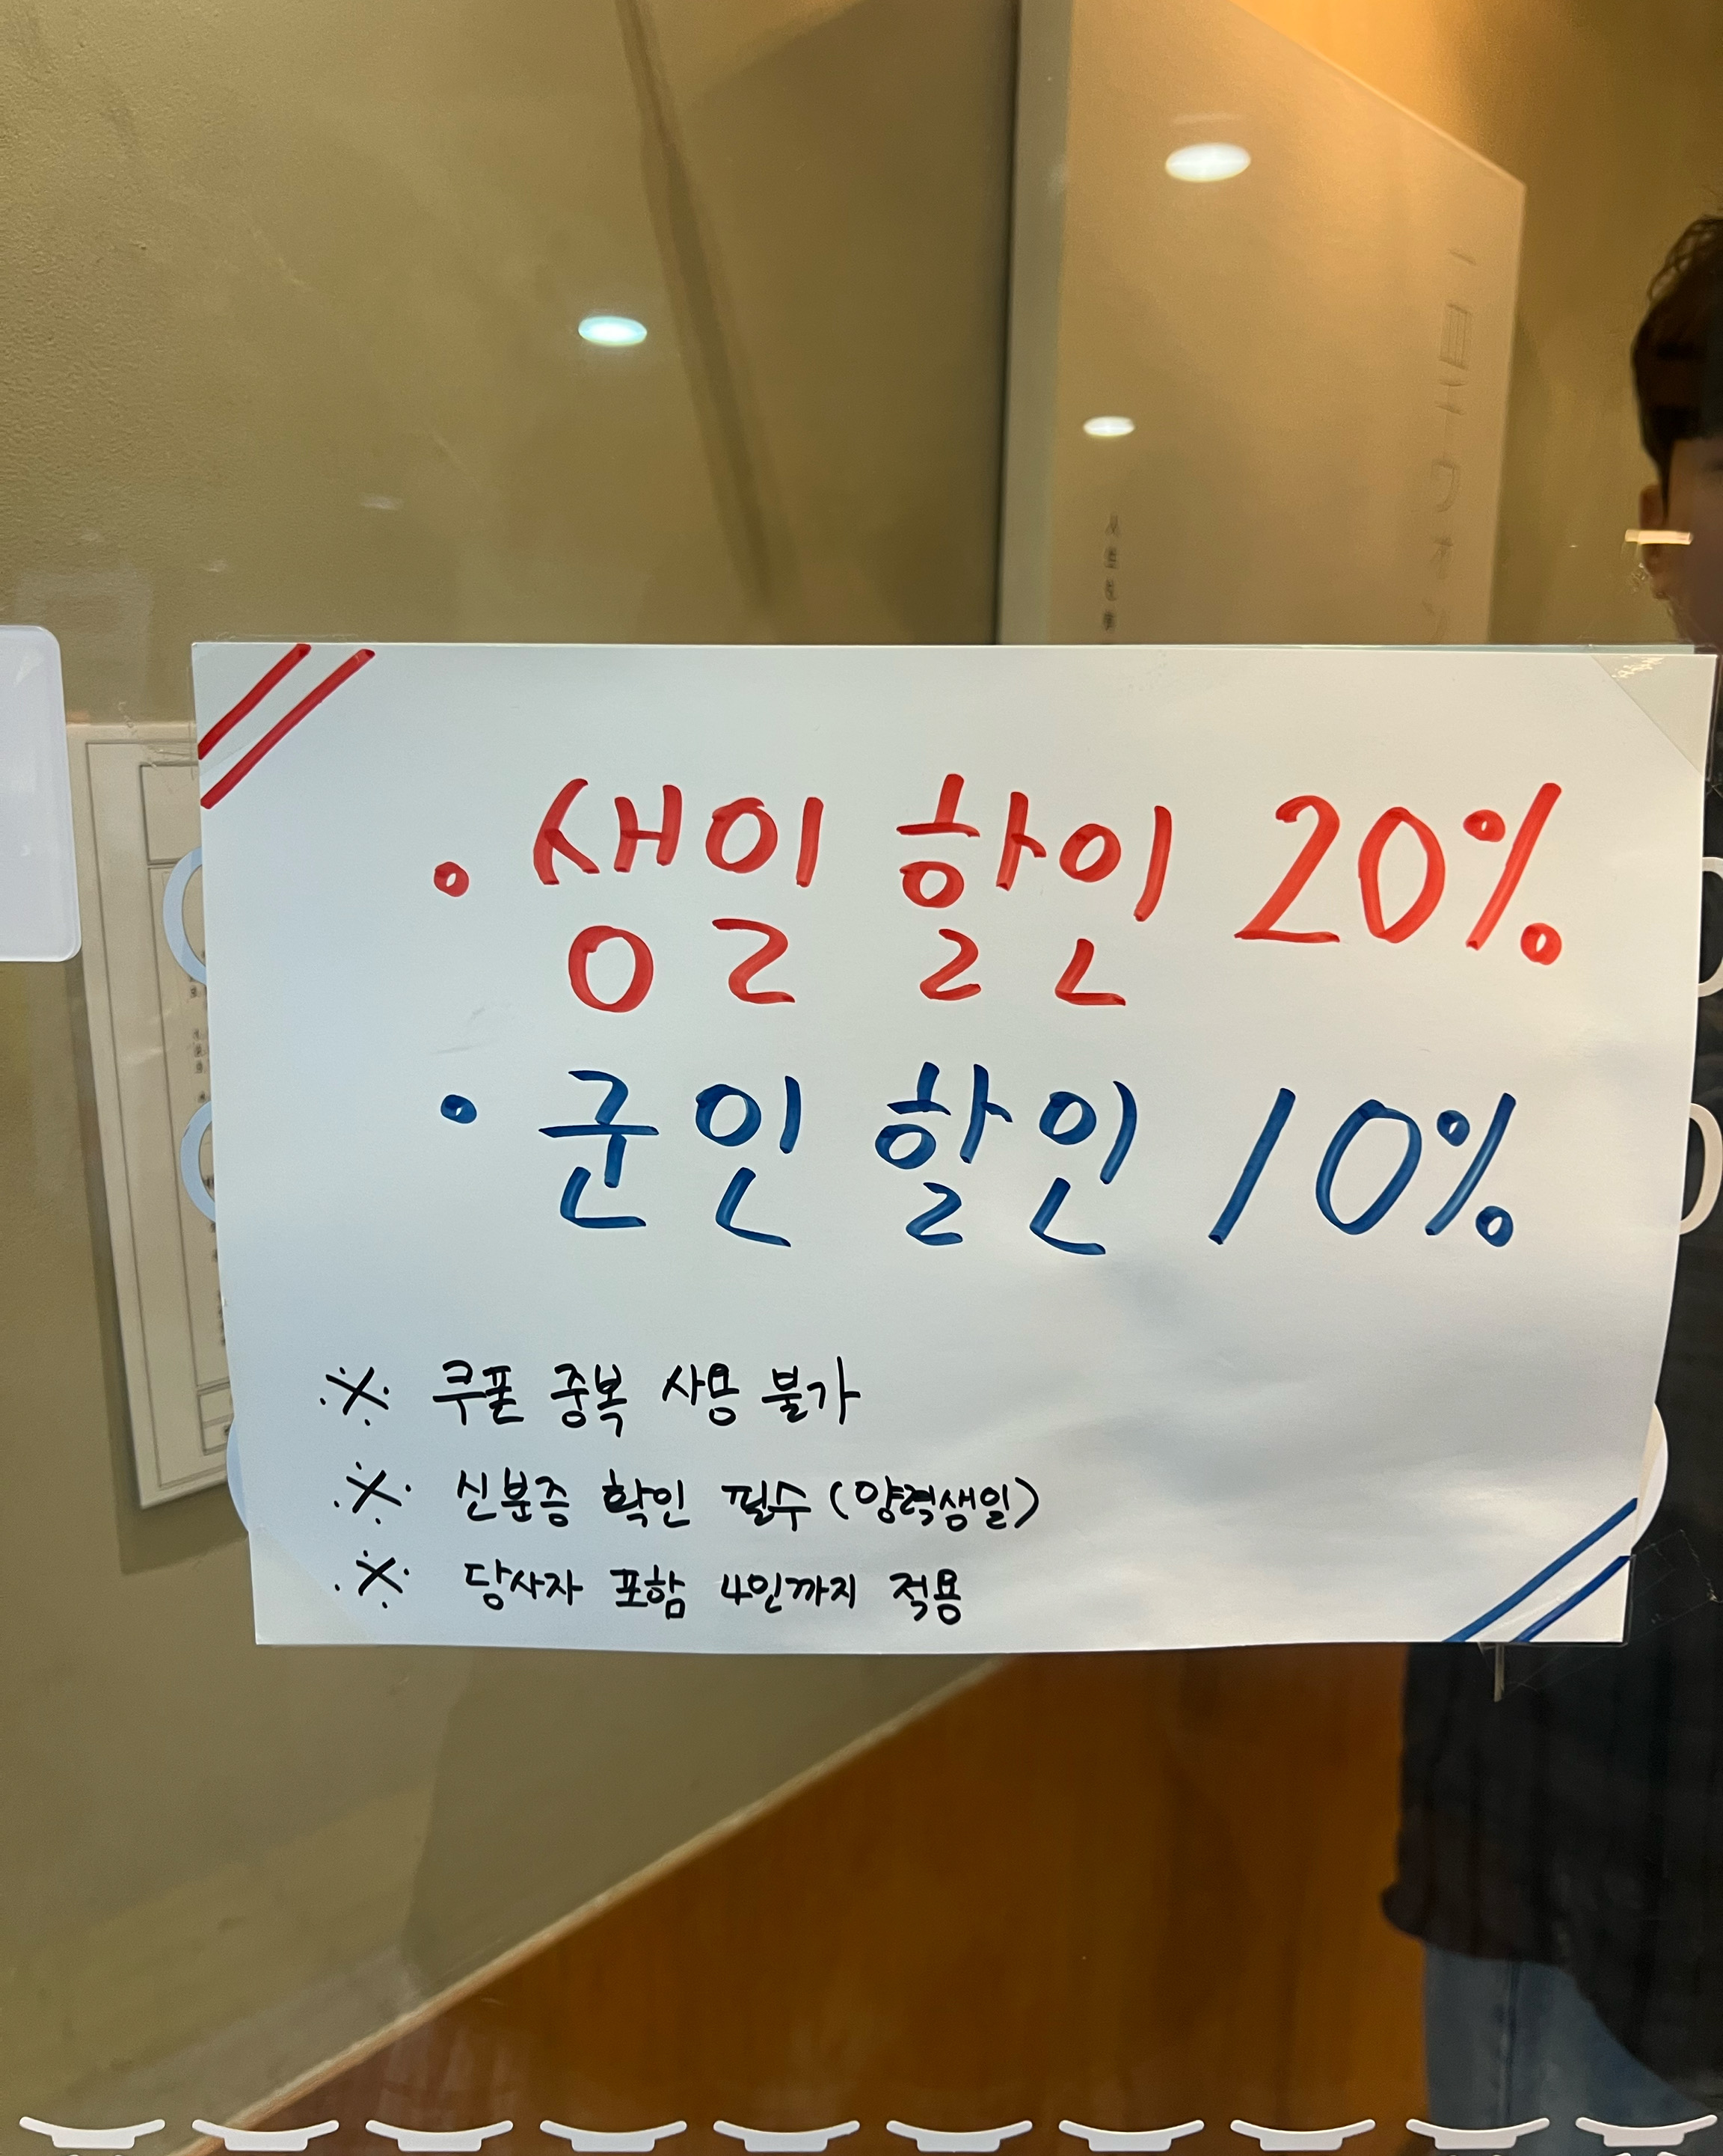 • 생일 할인 20%
• 군인 할인 10%
※ 쿠폰 중복 사용 불가
※ 신분증 확인 필수 (양력생일)
※ 당사자 포함 4인까지 적용